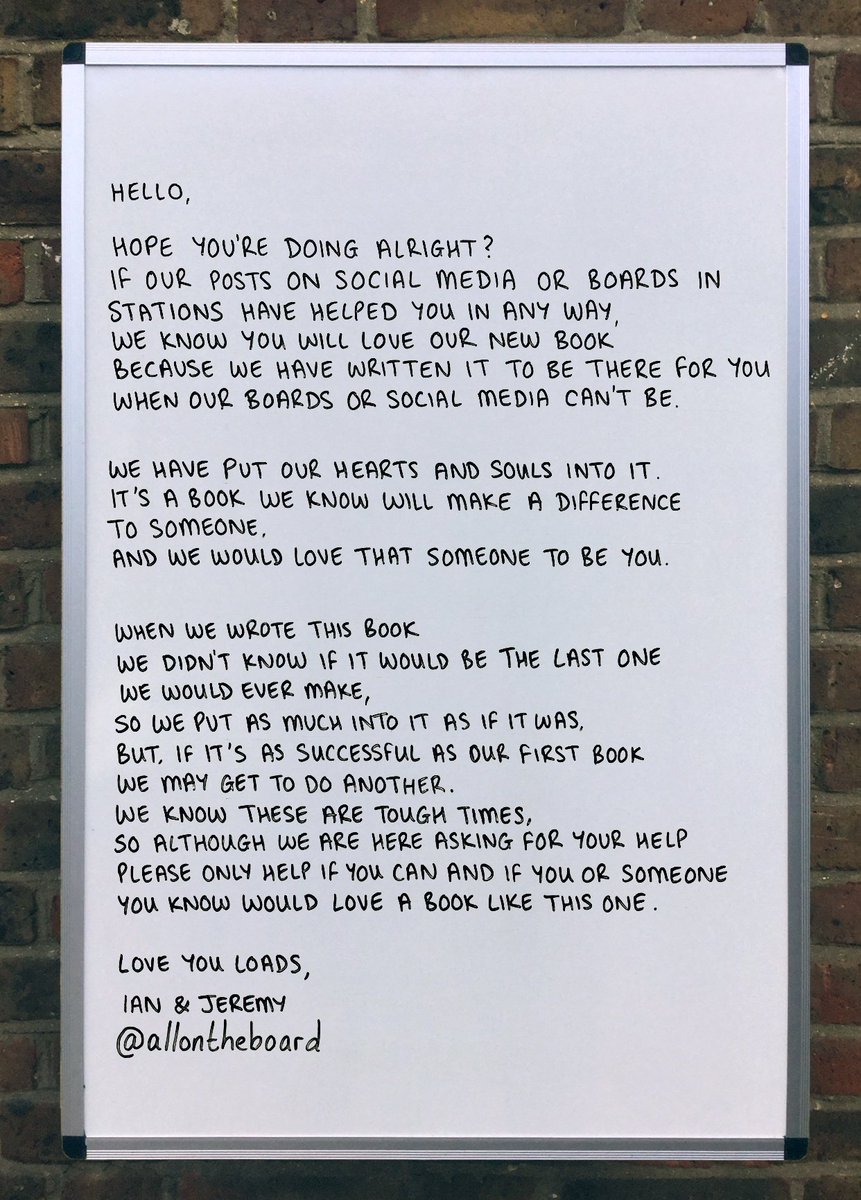 HELLO,
HOPE YOU'RE DOING ALRIGHT?
IF OUR POSTS ON SOCIAL MEDIA OR BOARDS IN
STATIONS HAVE HELPED YOU IN ANY WAY,
WE KNOW YOU WILL LOVE OUR NEW BOOK
BECAUSE WE HAVE WRITTEN IT TO BE THERE FOR YOU
WHEN OUR BOARDS OR SOCIAL MEDIA CAN'T BE.
WE HAVE PUT OUR HEARTS AND SOULS INTO IT.
IT'S A BOOK WE KNOW WILL MAKE A DIFFERENCE
TO SOMEONE,
AND WE WOULD LOVE THAT SOMEONE TO BE YOU.
WHEN WE WROTE THIS BOOK
WE DIDN'T KNOW IF IT WOULD BE THE LAST ONE
WE WOULD EVER MAKE,
SO WE PUT AS MUCH INTO IT AS IF IT WAS,
BUT, IF IT'S AS SUCCESSFUL AS OUR FIRST BOOK
WE MAY GET TO DO ANOTHER.
WE KNOW THESE ARE TOUGH TIMES,
SO ALTHOUGH WE ARE HERE ASKING FOR YOUR HELP
PLEASE ONLY HELP IF YOU CAN AND IF YOU OR SOMEONE
YOU KNOW WOULD LOVE A BOOK LIKE THIS ONE.
LOVE YOU LOADS,
IAN & JEREMY
@allontheboard